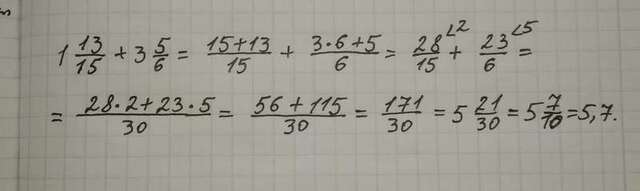 1 13/15 + 3 5/6 = 15+13/15 + 3·6+5/6 = 28/15 ∠2 + 23/6 ∠5 =
= 28·2+23·5/30 = 56+115/30 = 171/30 = 5 21/30 = 5 7/10 = 5,7.